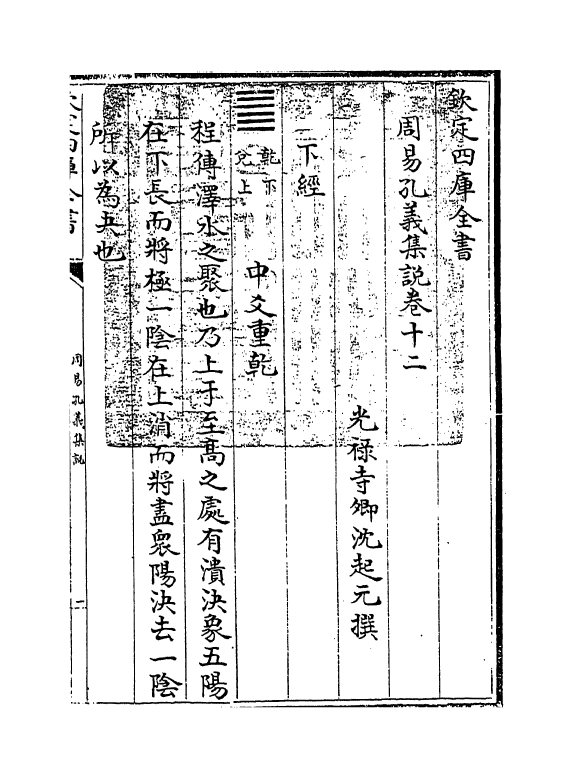 欽定四庫全書
周易孔義集説卷十二
光祿寺卿沈起元撰
下經
䷪
乾下
兌上
中爻重乾
程傳澤水之聚也乃上于至髙之處有潰決象五陽
在下長而將極一陰在上消而將盡衆陽決去一陰
所以為夬也
欽定四庫全書
周易孔義集説